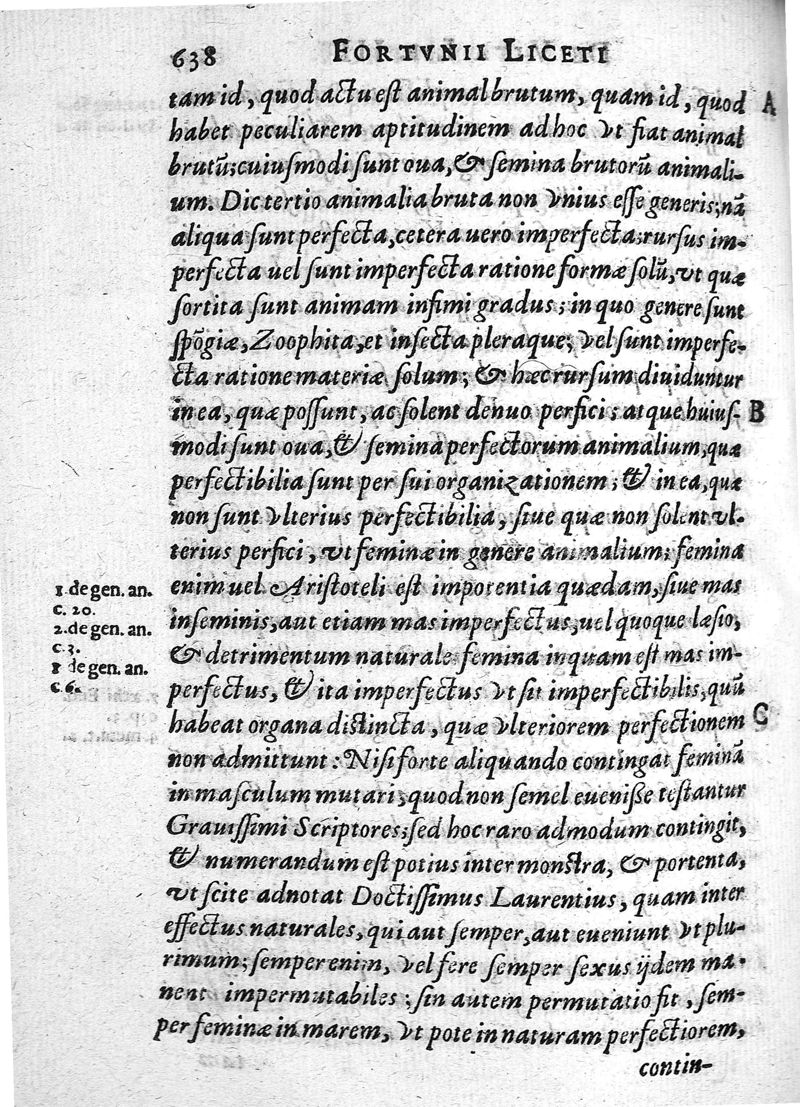 638 FORTVNII LICETI
tam id, quod actu est animal brutum, quam id, quod A
habet peculiarem aptitudinem ad hoc vt fiat animal
brutū; cuiusmodi sunt oua, & semina brutorū animali-
um. Dic tertio animalia bruta non vnius esse generis; nā
aliqua sunt perfecta, cetera uero imperfecta; rursus im-
perfecta uel sunt imperfecta ratione formæ solū, vt quæ
sortita sunt animam infimi gradus; in quo genere sunt
spōgiæ, Zoophita, et insecta pleraque; vel sunt imperfe-
cta ratione materiæ solum; & hæc rursum diuiduntur
in ea, quæ possunt, ac solent denuo perfici; atque huius- B
modi sunt oua, & semina perfectorum animalium, quæ
perfectibilia sunt per sui organizationem; & in ea, quæ
non sunt vlterius perfectibilia, siue quæ non solent vl-
terius perfici, vt feminæ in genere animalium; femina
1 de gen. an. enim uel Aristoteli est impotentia quædam, siue mas
c. 20. inseminis, aut etiam mas imperfectus, uel quoque læsio,
2. de gen. an.
c. 3. & detrimentum naturale femina inquam est mas im-
de gen. an.
c. 6. perfectus, & ita imperfectus vt sit imperfectibilis, quū
habeat organa distincta, quæ vlteriorem perfectionem C
non admittunt: Nisi forte aliquando contingat feminā
in masculum mutari, quod non semel euenisse testantur
Grauissimi Scriptores; sed hoc raro admodum contingit,
& numerandum est potius inter monstra, & portenta,
vt scite adnotat Doctissimus Laurentius, quam inter
effectus naturales, qui aut semper, aut eueniunt vt plu-
rimum; semper enim, vel fere semper sexus ijdem ma-
nent impermutabiles; sin autem permutatio fit, sem-
per feminæ in marem, vt pote in naturam perfectiorem,
contin-